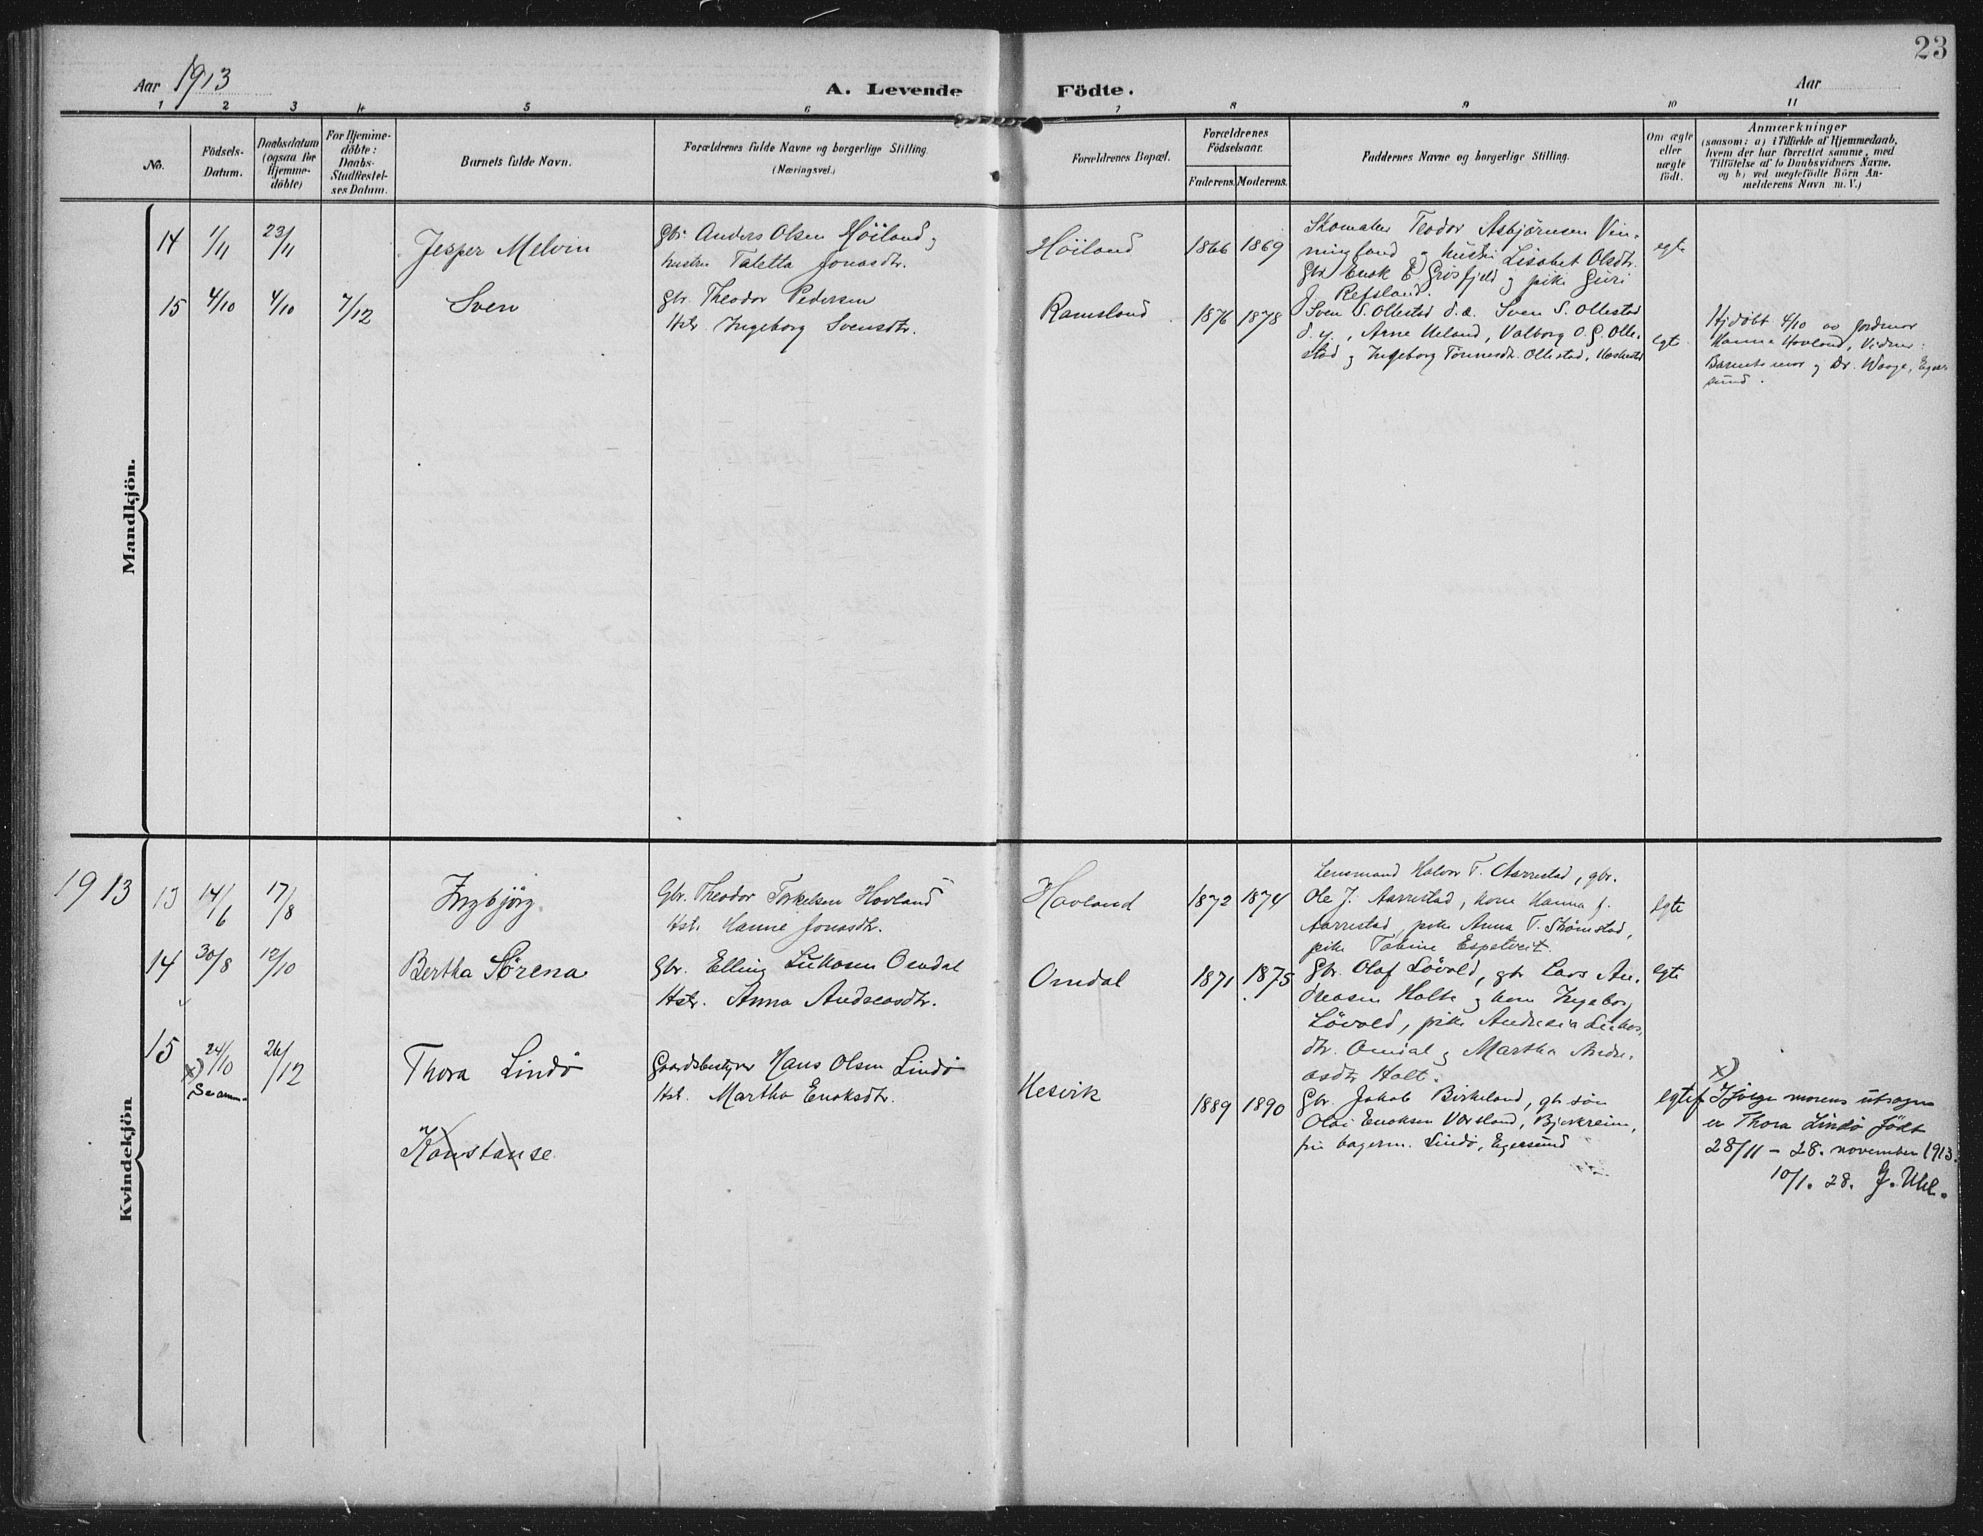 23
Aar 1913
A. Levende Födte.
Aar
1 2 3 4 5 6 7 8 9 10 11
No.
Födsels-
Datum.
Daabsdatum
(ogsaa for
Hjemme-
döbte)
For Hjemme-
döbte:
Daabs-
Stadfæstel-
ses Datum.
Barnets fulde Navn.
Forældrenes fulde Navne og borgerlige Stilling.
(Næringsvei.)
Forældrenes Bopæl.
Forældrenes
Födselsaar.
Faderens. Moderens.
Faddernes Navne og borgerlige Stilling.
Om ægte
eller
uægte
födt.
Anmærkninger
(saasom: a) i Tilfælde af Hjemmedaab,
hvem der har forrettet samme, med
Tilföielse af to Daabsvidners Navne,
og b) ved uægtefödte Börn An-
melderens Navn m. V.)
Mandkjön.
14 1/11 23/11
Jesper Melvin
Gbr. Anders Olsen Höiland og
hustru Taletta Jonasdtr.
Höiland
1866 1869
Skomaker Teodor Asbjørnsen Vin-
ningland og hustru Lisabet Olsdtr.
Gbr Enok E Grösfjeld og pike Guri
J. Refsland.
egte
15 4/10 4/10 7/12
Sven
Gbr. Theodor Pedersen
Hstr. Ingeborg Svensdtr.
Ramsland
1876 1878
Sven S. Ollestad d.æ. Sven S. Ollestad
d.y., Arne Ueland, Valborg O.G. Olle-
stad og Ingeborg Tönnesdtr. Ollestad,
egte
Hjdöbt 4/10 av Jordmor
Hanna Hovland, Vidner:
Barnets mor og Dr. Waage, Eger-
sund.
Kvindekjön
1913
13 14/6 17/8
Ingbjörg
Gbr. Theodor Torkelsen Hovland
Hstr. Hanne Jonasdtr.
Hovland
1872 1874
Lensmand Halvor T. Aarrestad, gbr.
Ole J. Aarrestad, kone Hanna J.
Aarrestad, pike Anna T. Skömstad,
pike Tobine Espetveit
egte
14 30/8 12/10
Bertha Sørena
Gbr. Elling Lukasen Omdal
Hstr. Anna Andreasdtr.
Omdal
1871 1875
Gbr. Olaf Lövold, gbr Lars An-
dreasen Holte og kone Ingeborg
Lövold, pike Andrea Lukas-
dtr. Omdal og Martha Andre-
asdtr Holt.
egte
15 24/10 26/12
x)
Thora Lindö
Gaardsbestyrer Hans Olsen Lindö
Hst. Martha Enoksdtr.
Hesvik
1889 1890
Gbr. Jakob Birkeland, gbr. søn
Olai Enoksen Vasland, Bjerkreim,
fru bagerm. Lindö, Egersund
egtef
Konstanse
x)
Ifölge morens utsagn
er Thora Lindö födt
28/11 - 28. november 1913.
10/1. 28. J. Uhl.